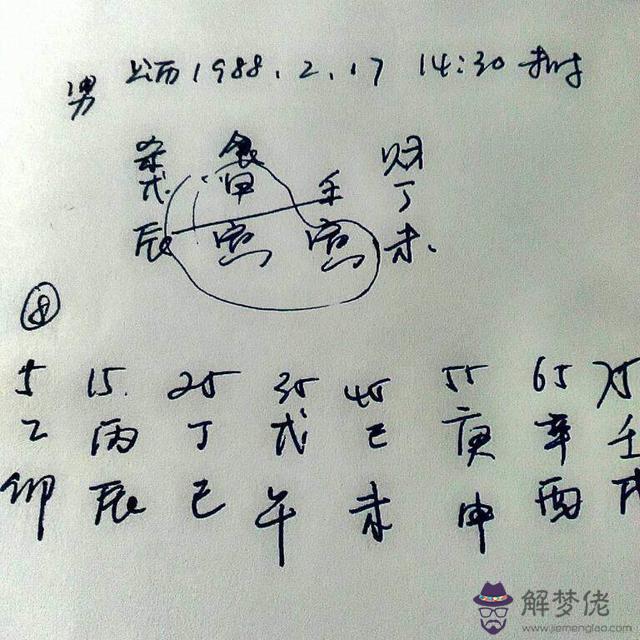 男 公历1988.2.17 14:30 未时
杀 食 财
戊 甲 壬 丁
辰 寅 寅 未.
⑧
5 15. 25 35 45 55 65 75
乙 丙 丁 戊 己 庚 辛 壬
卯 辰 巳 午 未 申 酉 戌
解梦佬
www.jiemenglao.com